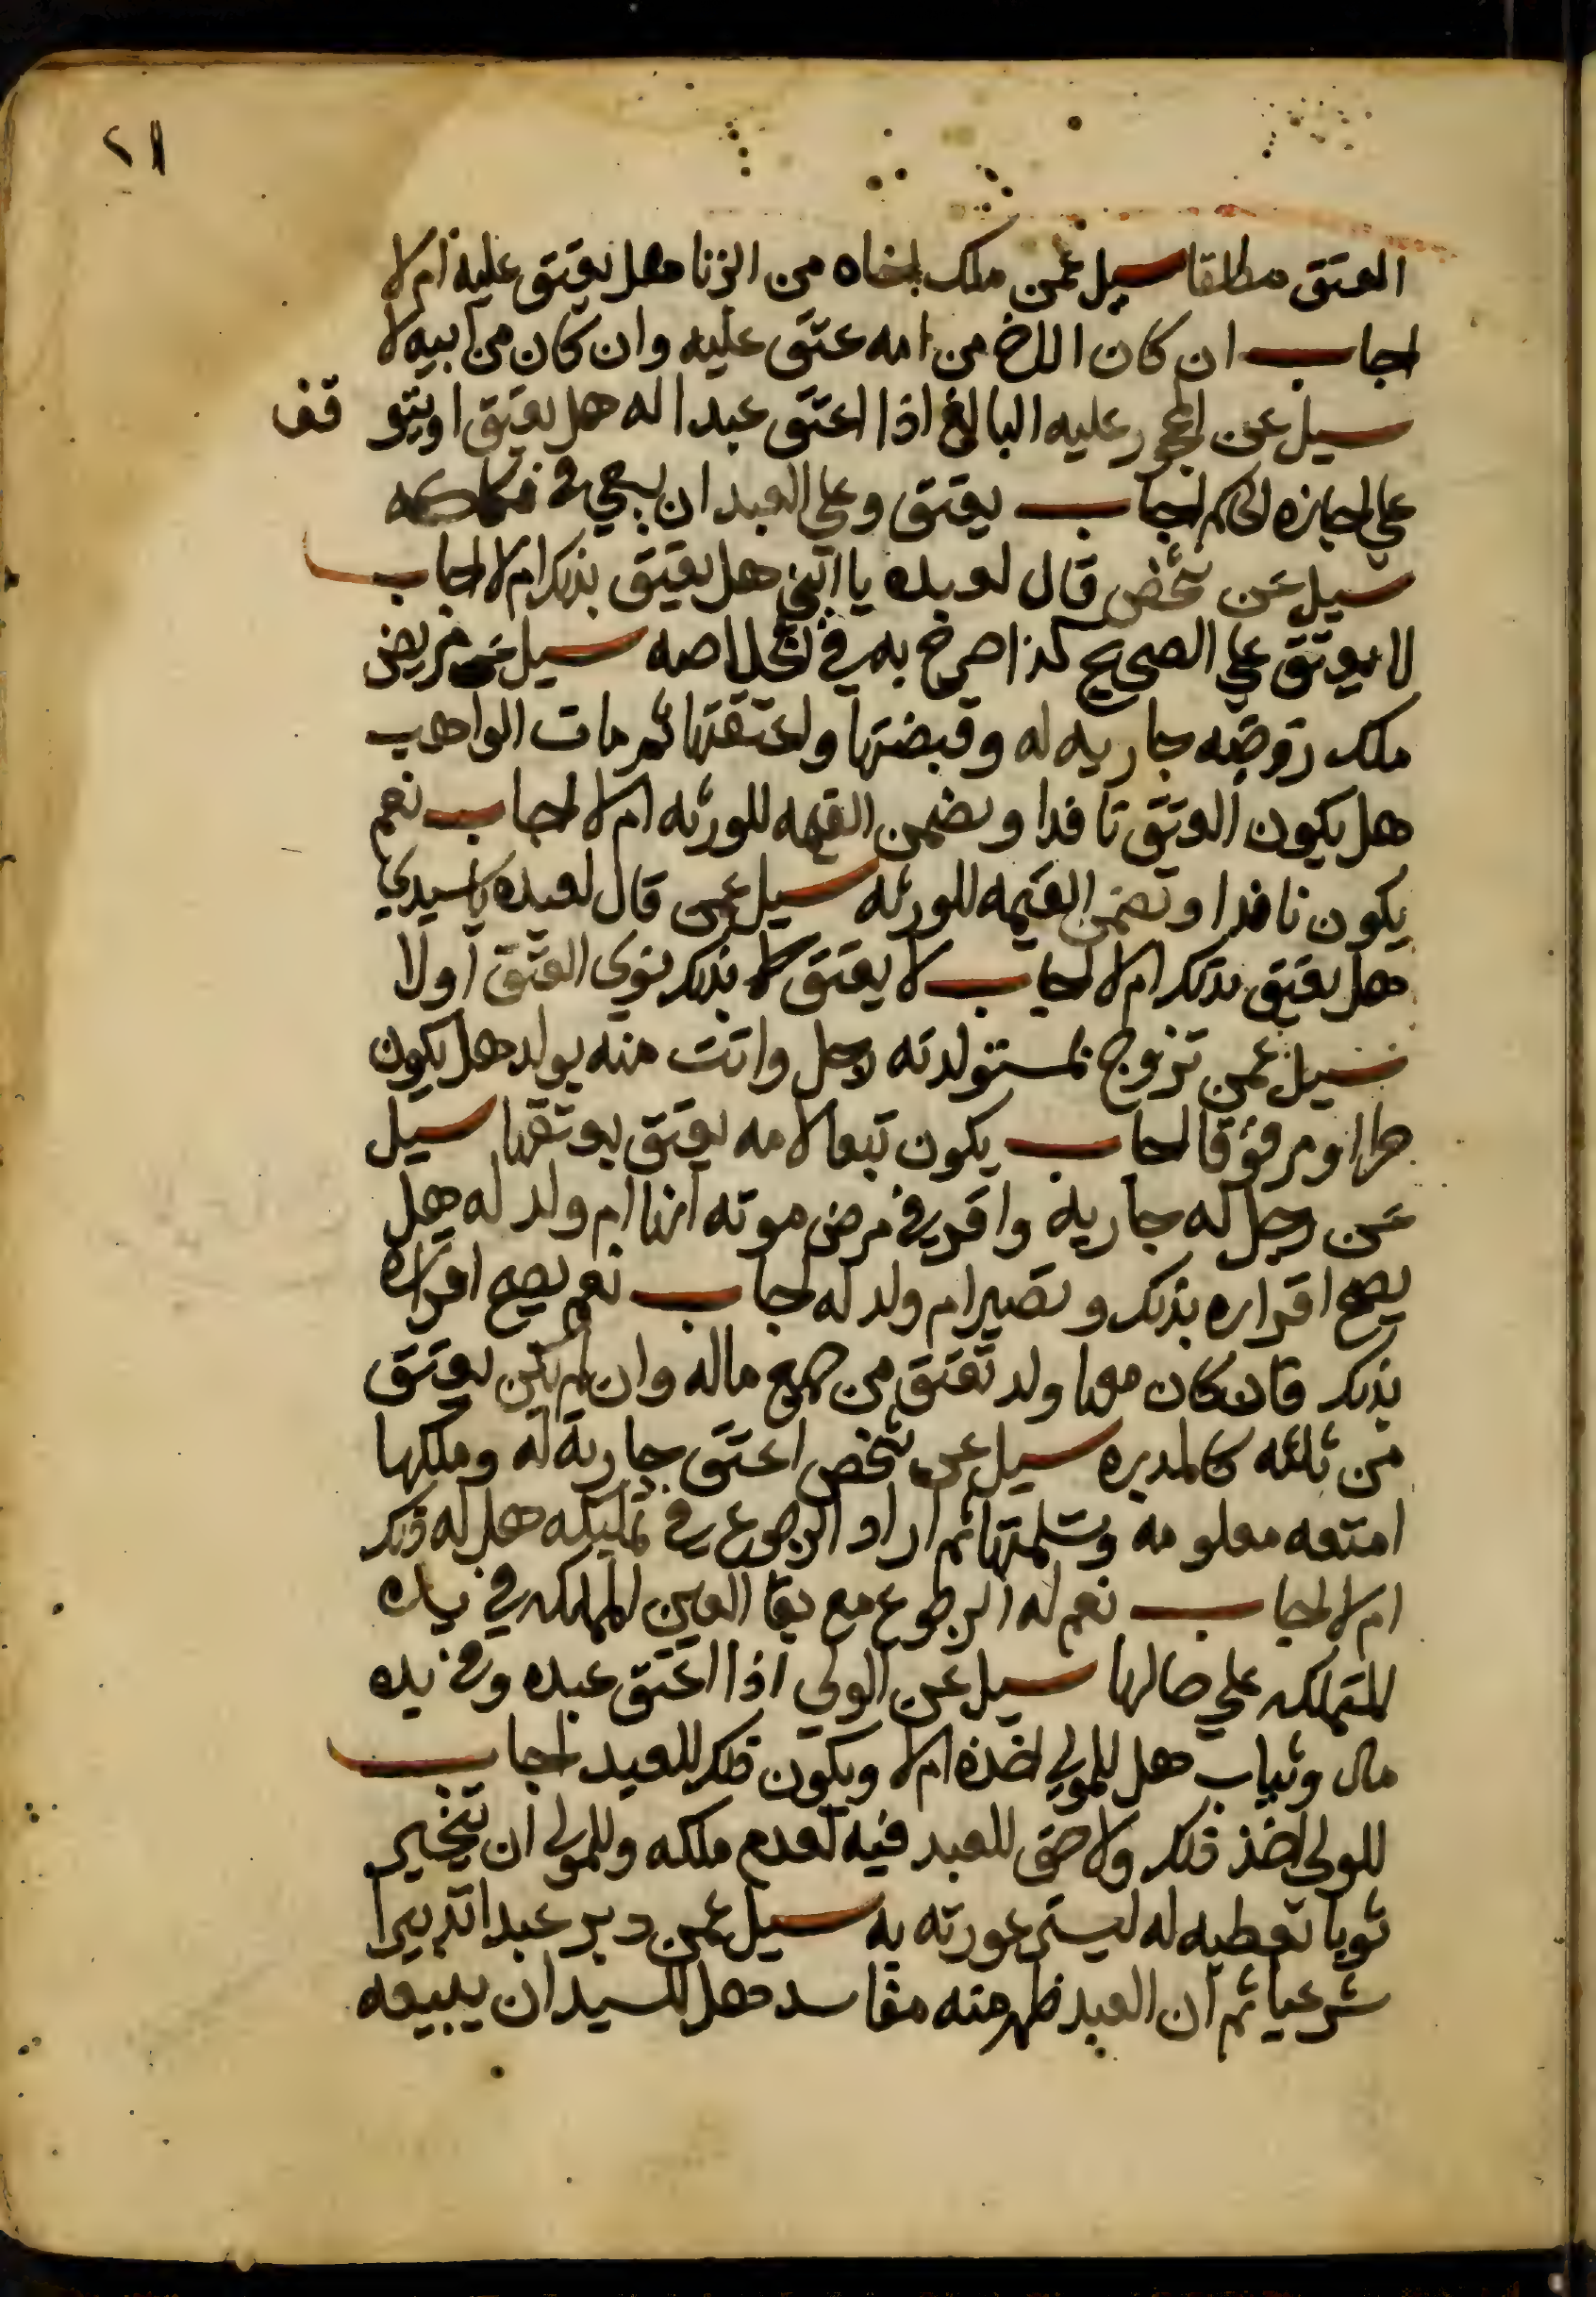 ٢١
العتق مطلقا سيل عمن ملك اخاه من الزنا هل يعتق عليه ام لا
اجاب ان كان الاخ من امه عتق عليه وان كان من ابيه لا
سيل عن المحجور عليه البالغ اذا اعتق عبدا له هل يعتق او يتو قف
علي اجازه الحاكم اجاب يعتق وعلي العبد ان يسعي في فكاكه
سيل عن شخص قال لعبده يا ابني هل يعتق بذلك ام لا اجاب
لا يعتق علي الصحيح كذا صرح به في الخلاصه سيل عن مريض
ملك زوجته جاريه له وقبضتها واعتقتها ثم مات الواهب
هل يكون العتق نافدا وتضمن القيمه للورثه ام لا اجاب نعم
يكون نافدا وتضمن القيمه للورثه سيل عمن قال لعبده يا سيدي
هل يعتق بذلك ام لا اجاب لا يعتق بذلك نوي العتق اولا
سيل عمن تزوج بمستولدته رجل واتت منه بولد هل يكون
حرا او مرقوقا اجاب يكون تبعا لامه يعتق بعتقها سيل
عن رجل له جارية واقر في مرض موته انها ام ولد له هل
يصح اقراره بذلك وتصير ام ولد له اجاب نعم يصح اقراره
بذلك فان كان معها ولد تعتق من جميع ماله وان لم يكن يعتق
من ثلثه كالمدبره سيل عن شخص اعتق جارية له وملكها
امتعه معلومه وتسلمتها ثم اراد الرجوع في تمليكه هل له ذلك
ام لا اجاب نعم له الرجوع مع بقا العين المملكه في يده
المتملكه علي حالها سيل عن المولي اذا اعتق عبده وفي يده
مال وثياب هل للمولي اخذه ام لا ويكون ذلك للعبد اجاب
للمولي اخذ ذلك ولا حق للعبد فيه لعدم ملكه وللمولي ان يتخير
ثوبا تعطيه له ليستر عورته به سيل عمن دبر عبدا تدبيرا
شرعيا ثم ان العبد ظهر منه مفاسد هل للسيد ان يبيعه